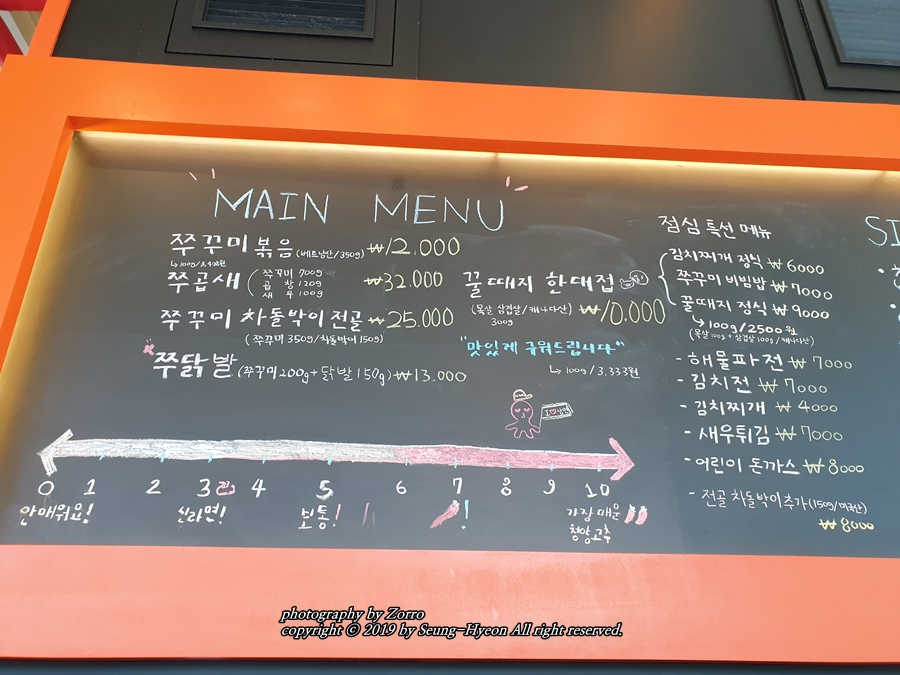 MAIN MENU
쭈꾸미 볶음 (베트남산/350g) ₩12.000
↳100g/3.428원
쭈곱새 ( 쭈꾸미 700g ₩32.000
곱창 120g
새우 100g
쭈꾸미 차돌박이 전골 ₩25.000
(쭈꾸미 350g/차돌박이 150g)
쭈닭발 (쭈꾸미 200g+닭발 150g) ₩13.000
꿀돼지 한대접
(목살 삼겹살/캐나다산) ₩10.000
300g
"맛있게 구워드립니다"
↳100g/3.333원
I ♡
0 1 2 3 4 5 6 7 8 9 10
안매워요! 신라면! 보통! ! 가장 매운
청양고추
점심 특선 메뉴
김치찌개 정식 ₩6000
쭈꾸미 비빔밥 ₩7000
꿀돼지 정식 ₩9000
↳100g/2500원
(목살 100g + 삼겹살 100g / 캐나다산)
- 해물파전 ₩7000
- 김치전 ₩7000
- 김치찌개 ₩4000
- 새우튀김 ₩7000
- 어린이 돈까스 ₩8000
- 전골 차돌박이추가 (150g/미국산)
₩8000
SI
photography by Zorro
copyright © 2019 by Seung-Hyeon All right reserved.